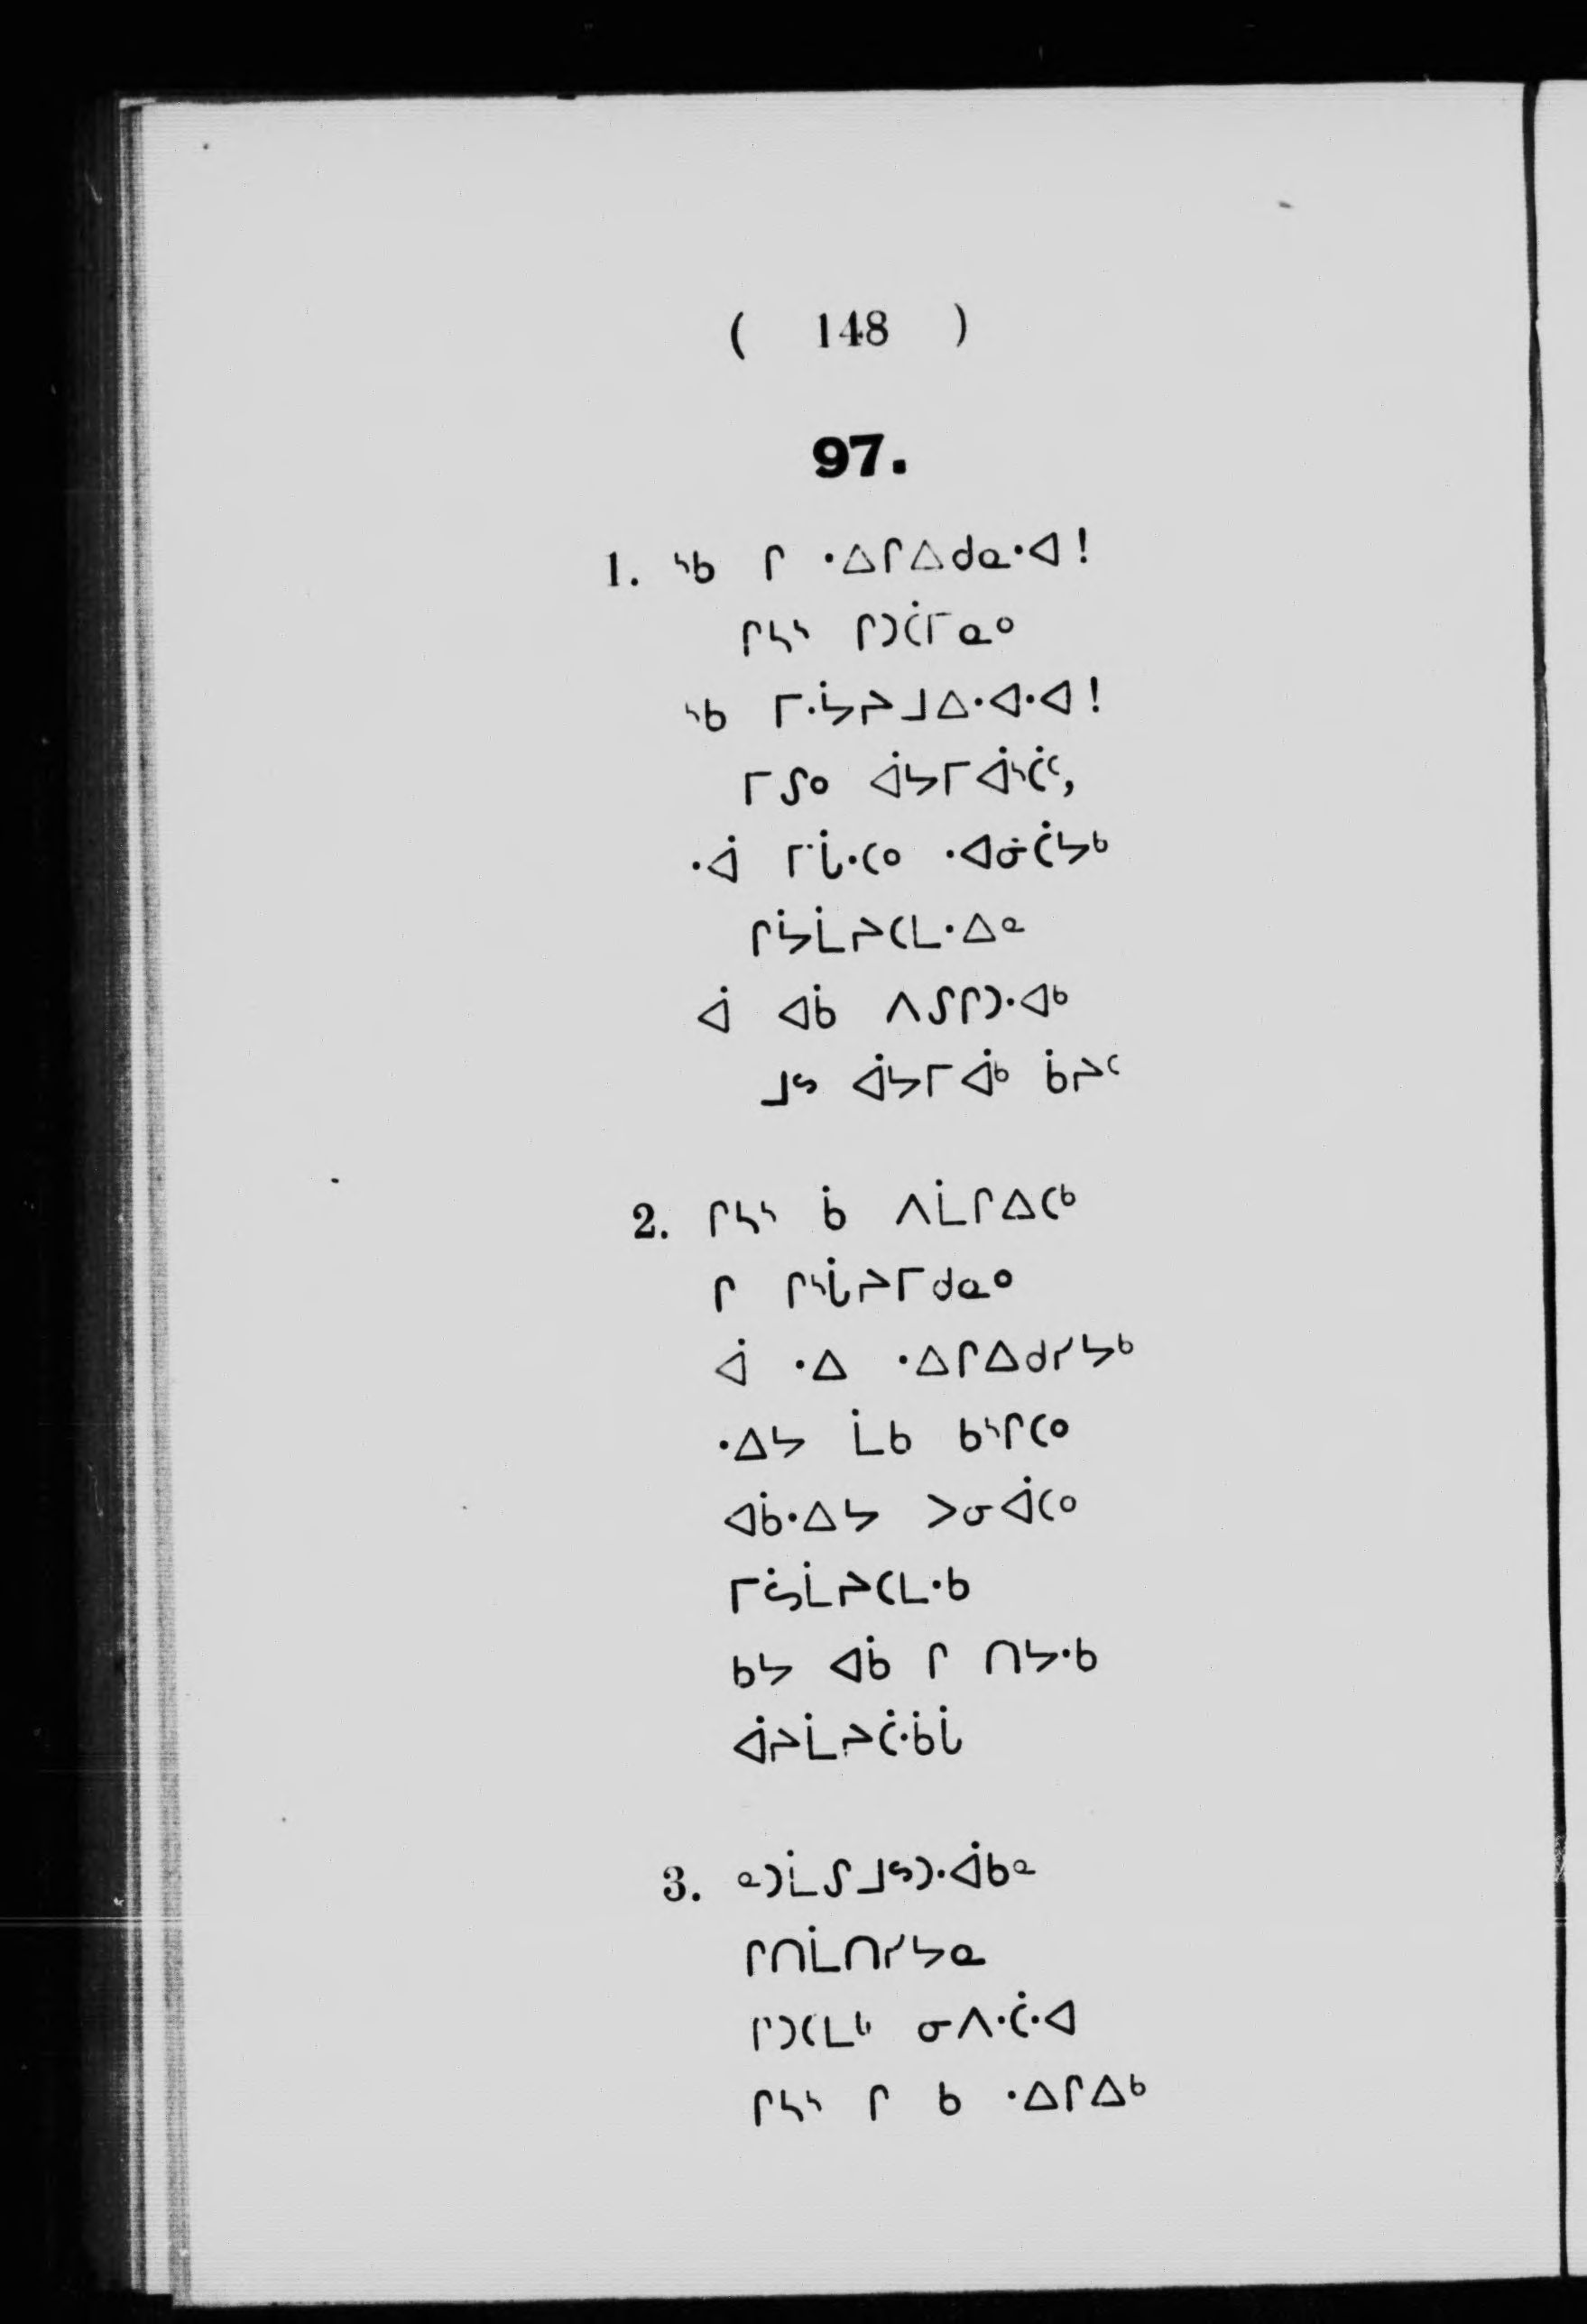 ( 148 )
97.
1. ᔅᑲ ᒋ ᐧᐃᒋᐃᑯᓇᐧᐊ !
ᒋᓴᔅ ᒋᑐᑖᒥᓇᐤ
ᔅᑲ ᒥᐧᔮᔨᒧᐃᐧᐊᐧᐊ !
ᒥᔑᐤ ᐋᔭᒥᐋᔅᑖᑦ,
ᐧᐋ ᒥᒑᐧᑕᐤ ᐧᐊᓃᑖᔭᒃ
ᒋᔮᒫᔨᑕᒪᐧᐃᓐ
ᐋ ᐊᑳ ᐱᔑᒋᑐᐧᐊᒃ
ᒧᔥ ᐋᔭᒥᐋᒃ ᑳᔨᑦ
2. ᒋᓴᔅ ᑳ ᐱᒫᒋᐃᑕᒃ
ᒋ ᒋᔅᒑᔨᒥᑯᓇᐤ
ᐋ ᐧᐃ ᐧᐃᒋᐃᑯᓯᔭᒃ
ᐧᐃᔭ ᒫᑲ ᑲᔅᒋᑕᐤ
ᐊᑳᐧᐃᔭ ᐳᓂᐋᑕᐤ
ᒥᔖᒫᔨᑕᒪᐧᑲ
ᑲᔭ ᐊᑳ ᒋ ᑎᔭᐧᑲ
ᐋᔨᒫᔨᑖᐧᑳᒑ
3. ᓐᑐᒫᔑᒧᔥᑐᐧᐋᑲᓐ
ᒋᑎᒫᑎᓯᔭᓇ
ᒋᑐᑕᒪᒃ ᓂᐱᐧᑖᐧᐊ
ᒋᓴᔅ ᒋ ᑲ ᐧᐃᒋᐃᒃ